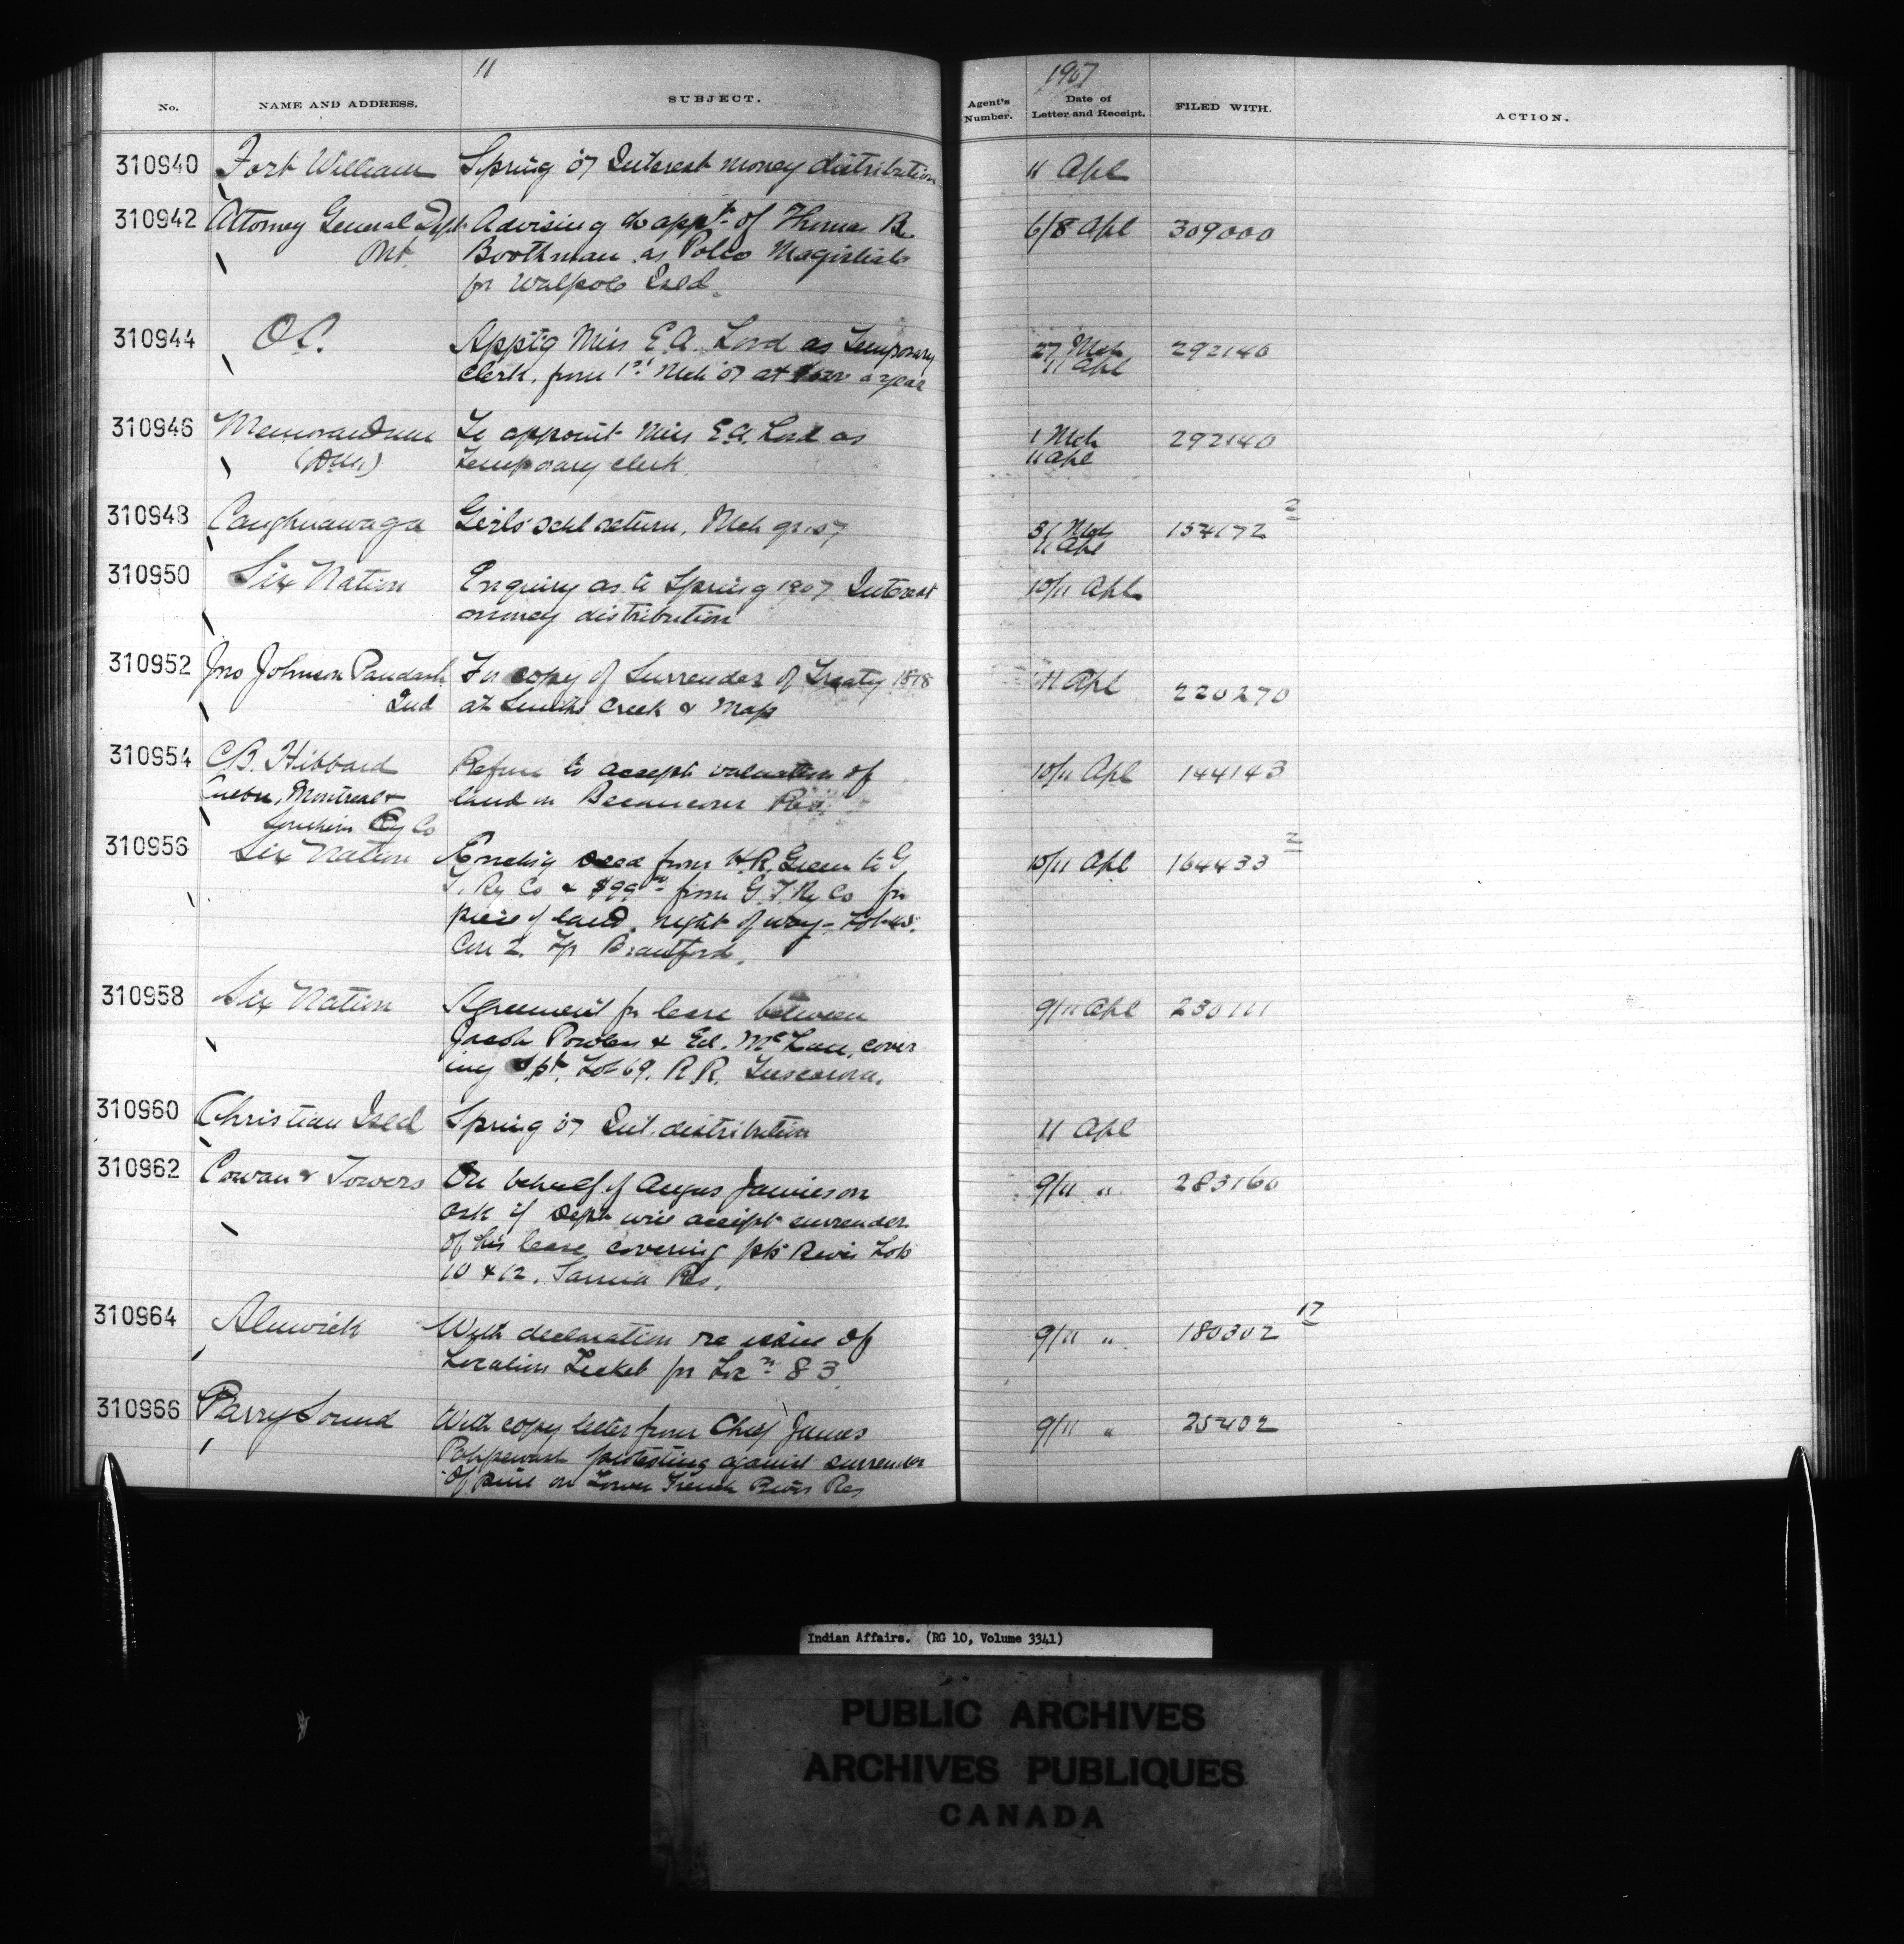 11
1907
No. NAME AND ADDRESS. SUBJECT. Agent's Number. Date of Letter and Receipt. FILED WITH. ACTION.
310940 Fort William Spring 07 Interest money distribution 11 Apl
310942 Attorney General Dept Advising appt of Thomas B. 6/8 Apl 309000
Ont. Boothman as Police Magistrate
for Walpole Isld.
310944 O.C. Apptg Miss E.A. Lord as Temporary 27 Mch 292140
clerk, from 1st Mch 07 at a year 11 Apl
310946 Memorandum To appoint Miss E.A. Lord as 1 Mch 292140
temporary clerk. 11 Apl
310948 Caughnawaga Girls schl return, Mch qr. 07 31 Mch 154172 2
11 Apl
310950 Six Nation Enquiry as to Spring 1907 Interest 10/11 Apl
money distribution
310952 Jno Johnson Paudash For copy of Surrender of Treaty 1818 11 Apl 220270
Ind at Smiths Creek & Map
310954 C.B. Hibbard Refuse to accept valuation of 10/11 Apl 144143
Quebec, Montreal & land in Becancour Res.
Southern Ry Co
310956 Six Nation Encling deed from W.R. Green to G 10/11 Apl 164433 2
T. Ry Co & $99.00 from G.T. Ry Co for
piece of land, right of way - Lot
Con 2. Tp Brantford.
310958 Six Nation Agreement for lease between 9/11 Apl 230111
Jacob Powless & Ed. cover
ing pt. Lot 69. R.R. Tuscarora.
310960 Christian Isld Spring 07 Int. distribution 11 Apl
310962 Cowan & Towers On behalf of Angus Jamieson 9/11 " 283160
ask if Dept will accept surrender
of his lease covering pts River Lots
10 & 12. Sarnia Res.
310964 Alnwick With declaration re issue of 9/11 " 180302 17
Location Ticket for Locn 83
310966 Parry Sound With copy letter from Chief James 9/11 " 25402
protesting against surrender
of pine on Lower French River Res
Indian Affairs. (RG 10, Volume 3341)
PUBLIC ARCHIVES
ARCHIVES PUBLIQUES
CANADA